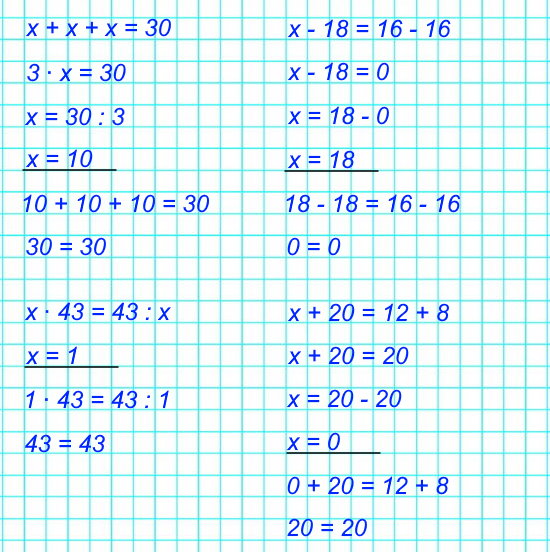 x + x + x = 30
3 · x = 30
x = 30 : 3
x = 10
10 + 10 + 10 = 30
30 = 30
x - 18 = 16 - 16
x - 18 = 0
x = 18 - 0
x = 18
18 - 18 = 16 - 16
0 = 0
x · 43 = 43 : x
x = 1
1 · 43 = 43 : 1
43 = 43
x + 20 = 12 + 8
x + 20 = 20
x = 20 - 20
x = 0
0 + 20 = 12 + 8
20 = 20